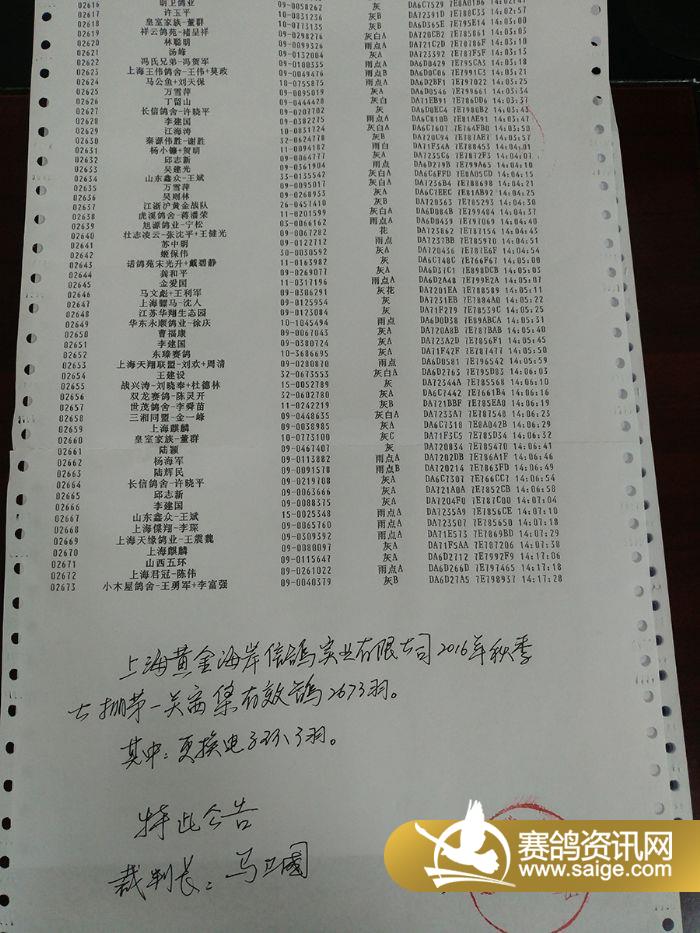 02616 胡卫鸽业 09-0050262 灰 DA6C7529 7E8A01D6 14:02:47
02617 许玉平 10-0831236 灰B DA72391D 14:02:57
02618 皇室家族-董群 10-0773135 灰B DA6D365E 7E795E14 14:03:00
02619 祥云鸽苑-褚呈祥 09-0298276 灰白A 14:03:01
02620 林聪明 09-0099324 雨点A 14:03:10
02621 汤峰 09-0132004 灰A 14:03:13
02622 冯氏兄弟-冯贺军 09-0100335 雨点A DA6D0429 7E795CA3 14:03:18
02623 上海王伟鸽舍-王伟+莫政 09-0049476 雨点B DA6D0C06 7E991C3 14:03:21
02624 马公鱼+刘天保 10-0755875 雨点A DA6D2BF1 14:03:25
02625 万雪萍 09-0095019 灰A DA6D0546 7E899661 14:03:34
02626 丁留山 09-0444428 灰白 DA71EB91 7E786DD6 14:03:37
02627 长信鸽舍-许晓平 09-0208702 灰 DA6D0EC4 7E7980B2 14:03:43
02628 李建国 09-0382275 雨点A DA6C810B 7E81AE91 14:03:47
02629 江海涛 10-0831724 灰白A DA6C7607 7E764FB0 14:03:50
02630 秦源伟胜-谢胜 32-0624778 灰B DA720C94 7E787AE7 14:03:57
02631 杨小镛+贺明 09-0111482 雨白 DA71F34A 7E788453 14:04:01
02632 邱志新 09-0064777 灰A DA7235C6 7E7872F3 14:04:07
02633 吴建光 09-0361904 雨点 DA6D279B 7E799A65 14:04:10
02634 山东鑫众-王斌 33-0135542 灰白A DA6C6FFD 7E8A05CD 14:04:15
02635 万雪萍 09-0095017 灰A DA7236B4 7E788698 14:04:21
02636 吴则林 09-0268933 灰A DA6C7EEC 7E81AB92 14:04:25
02637 江浙沪黄金战队 26-0457410 灰B DA720363 7E785293 14:04:30
02638 虎溪鸽舍-蒋潘荣 11-0201599 灰白A DA6D084B 7E799404 14:04:37
02639 旭源鸽业-宁松 03-0066162 雨点A DA6D0439 7E797069 14:04:40
02640 壮志凌云-张沈平+王健光 09-0067282 花 DA723862 7E787154 14:04:43
02641 苏中明 09-0122712 雨点 DA7237BB 7E785970 14:04:51
02642 姬保伟 30-0030592 灰A DA720436 7E787E6F 14:04:54
02643 诺鸽苑宋光升+戴碧静 11-0163987 灰 DA6C748C 7E766F67 14:05:00
02644 龚和平 09-0269077 灰A DA6D37C1 7E898DCB 14:05:03
02645 金爱国 11-0317196 雨点A DA6D2A48 7E799E2A 14:05:07
02646 马文彪+王利军 09-0306291 灰花 DA7201EA 7E788589 14:05:11
02647 上海翾马-沈人 09-0125954 灰A DA7231EB 7E7884A0 14:05:22
02648 江苏华翔生态园 09-0123084 灰 DA71F219 7E78539C 14:05:25
02649 华东永顺鸽业-徐庆 10-1045494 雨点 DA6D0D38 7E89ABCA 14:05:31
02650 曹福康 09-0067043 灰A DA720A8B 7E787BAB 14:05:40
02651 李建国 09-0380724 灰A DA723A2D 7E7856F1 14:05:45
02652 东璪赛鸽 10-3686695 灰A DA71F42F 7E787477 14:05:50
02653 上海天翔联盟-刘欢+周清 09-0280870 雨点A DA6D0581 7E796542 14:05:59
02654 王建设 32-0673553 灰白A DA6D2763 7E795D83 14:06:03
02655 战兴涛-刘晓奉+杜德林 15-0052789 灰 DA72344A 7E785568 14:06:10
02656 双龙赛鸽-陈灵开 32-0602780 灰A DA6C7442 7E7661B4 14:06:16
02657 世茂鸽舍-李舜苗 11-0242219 灰B DA721BBF 7E785EA0 14:06:19
02658 三湘同盟-金一峰 09-0448635 灰白A DA7233A7 7E787548 14:06:23
02659 上海麒麟 09-0038985 灰A DA6C7318 7E8A042B 14:06:29
02660 皇室家族-董群 10-0773100 灰C DA71F3C5 7E785D34 14:06:32
02661 陆颖 09-0467407 灰 DA720834 7E785470 14:06:41
02662 杨海军 09-0113882 雨点A DA7202DB 7E786A1F 14:06:46
02663 陆辉民 09-0091578 雨点B DA720214 7E7863FD 14:06:49
02664 长信鸽舍-许晓平 09-0219708 灰A DA6C7307 7E766CC7 14:06:54
02665 邱志新 09-0063666 灰A DA721A0A 7E7852CB 14:06:58
02666 李建国 09-0088375 灰A DA7204F0 7E787C00 14:07:04
02667 山东鑫众-王斌 15-0025348 雨点A DA7235A9 7E7856CE 14:07:10
02668 上海僷翔-李琛 09-0065760 雨点A DA723507 7E785650 14:07:18
02669 上海天缘鸽业-王震巍 09-0309392 雨点A DA71E573 7E7869BD 14:07:29
02670 上海麒麟 09-0080097 灰A DA71F5AA 7E787206 14:07:38
02671 山西五环 09-0115647 灰A DA6D2712 7E7992F9 14:17:06
02672 上海君冠-陈伟 09-0261022 雨点A DA6D266D 7E797465 14:17:18
02673 小木屋鸽舍-王勇军+李富强 09-0040379 灰B DA6D27A5 7E798937 14:17:28
上海黄金海岸信鸽实业有限公司2016年秋季
大棚第一关窗集有效鸽2673羽。
其中:更换电子环3羽。
特此公告
裁判长:马卫国
赛鸽资讯网
www.saige.com